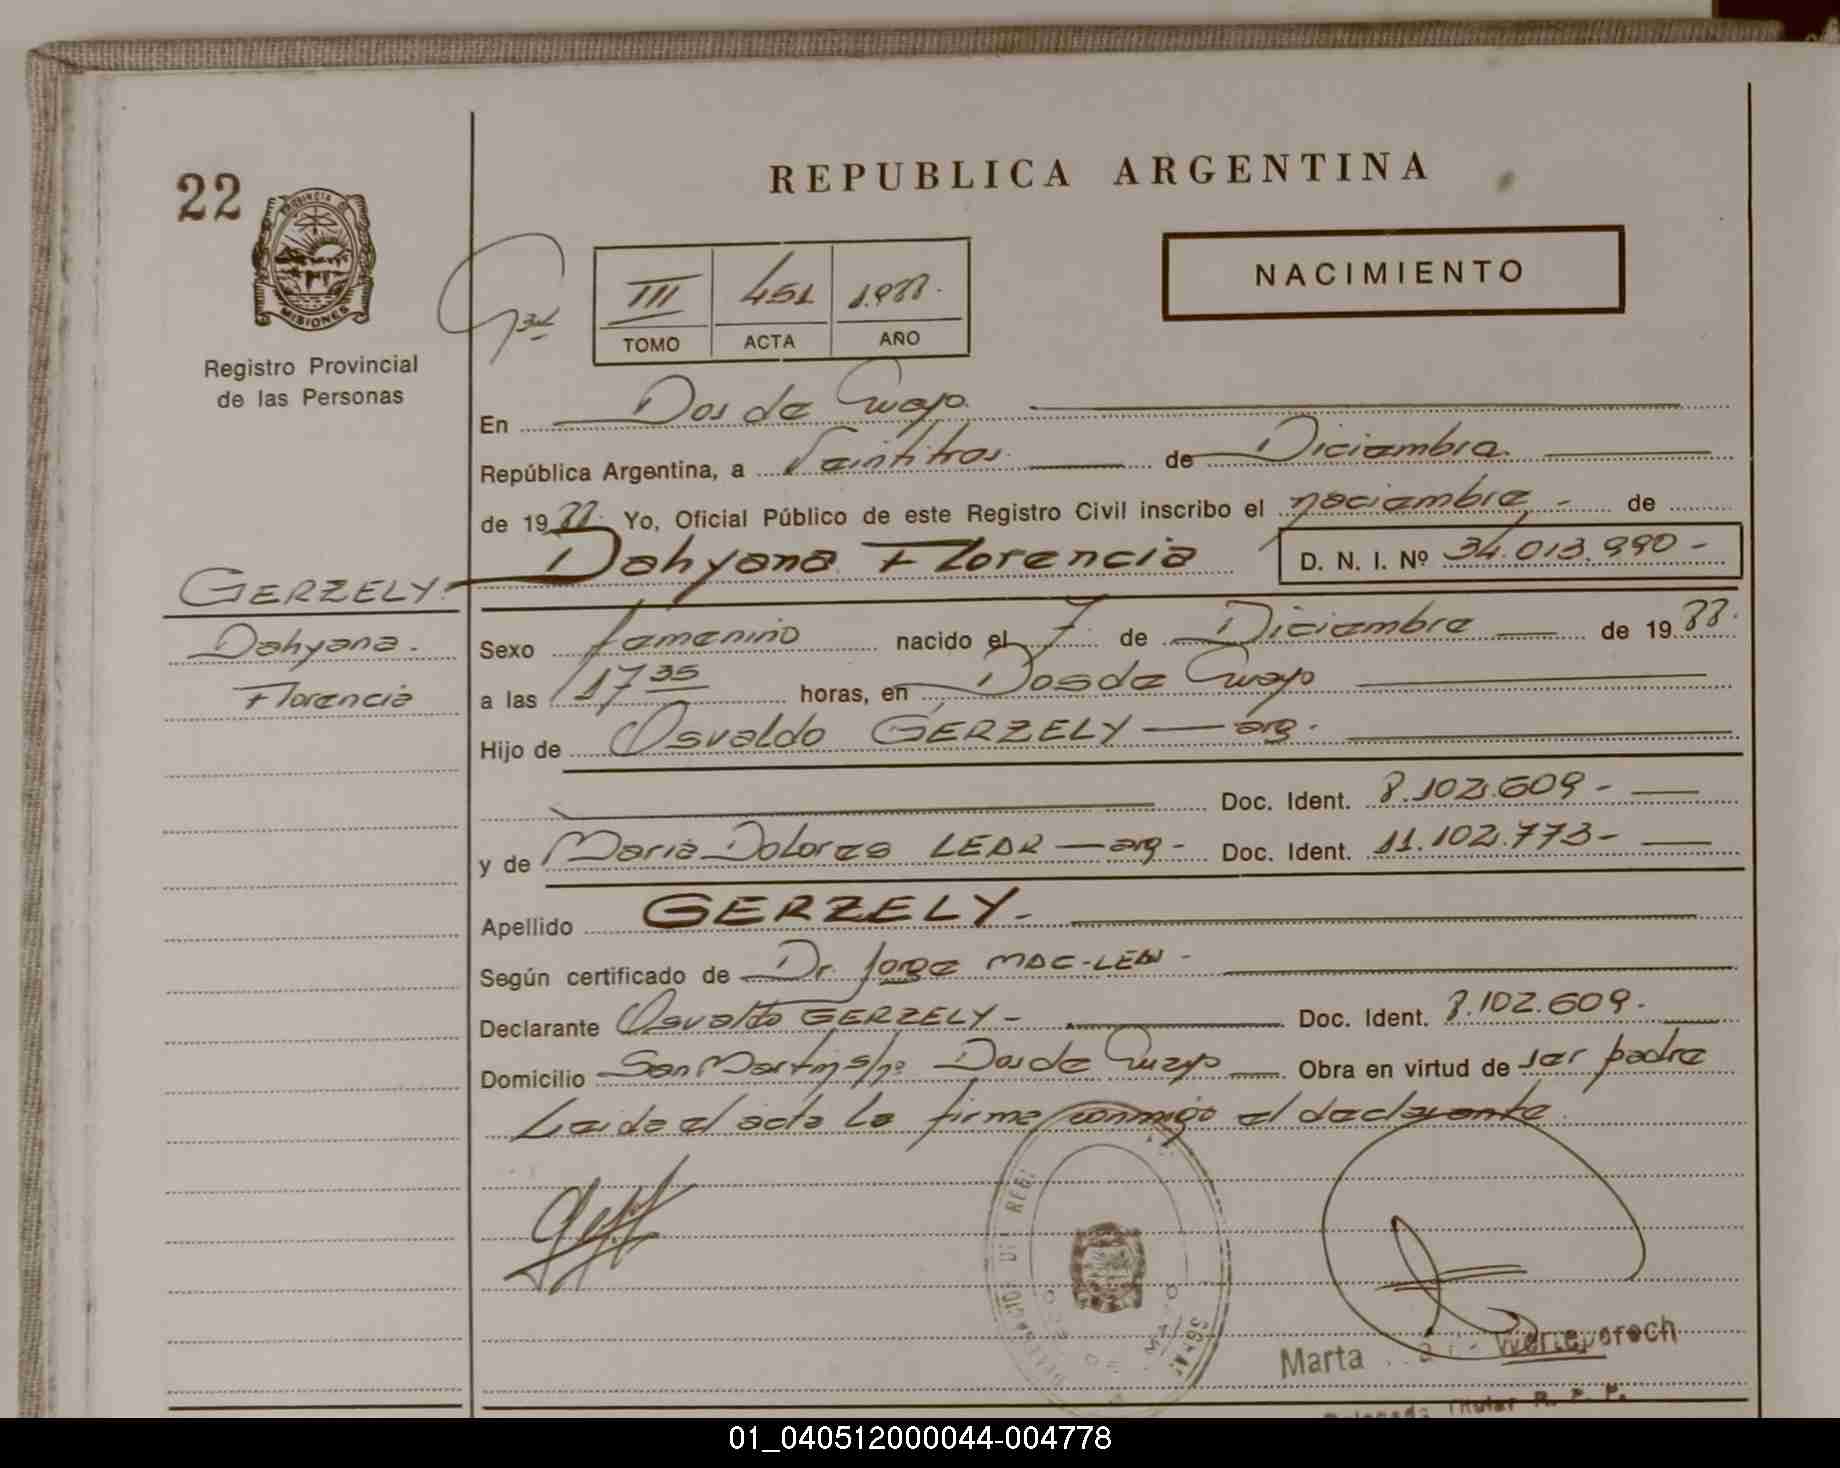 REPUBLICA ARGENTINA
22
PROVINCIA DE
MISIONES
Registro Provincial
de las Personas
NACIMIENTO
III 451 1.988.
TOMO ACTA AÑO
En Dos de Mayo.
República Argentina, a Veintitres. de Diciembre
de 1988. Yo, Oficial Público de este Registro Civil inscribo el nacimiento - de
Dahyana Florencia D. N. I. Nº 34.013.990 -
GERZELY.
Dahyana.
Florencia
Sexo femenino nacido el 7 de Diciembre de 1988.
a las 17 35 horas, en Dos de Mayo
Hijo de Osvaldo GERZELY — arg.
Doc. Ident. 8.102.609 -
y de Maria Dolores LEAR — arg - Doc. Ident. 11.102.773 -
Apellido GERZELY.
Según certificado de Dr. Jorge MAC-LEAN -
Declarante Osvaldo GERZELY - Doc. Ident. 8.102.609.
Domicilio San Martin s/nº Dos de Mayo Obra en virtud de ser padre
Leida el acta la firma conmigo el declarante.
Marta
Titular R. P. P.
01_040512000044-004778